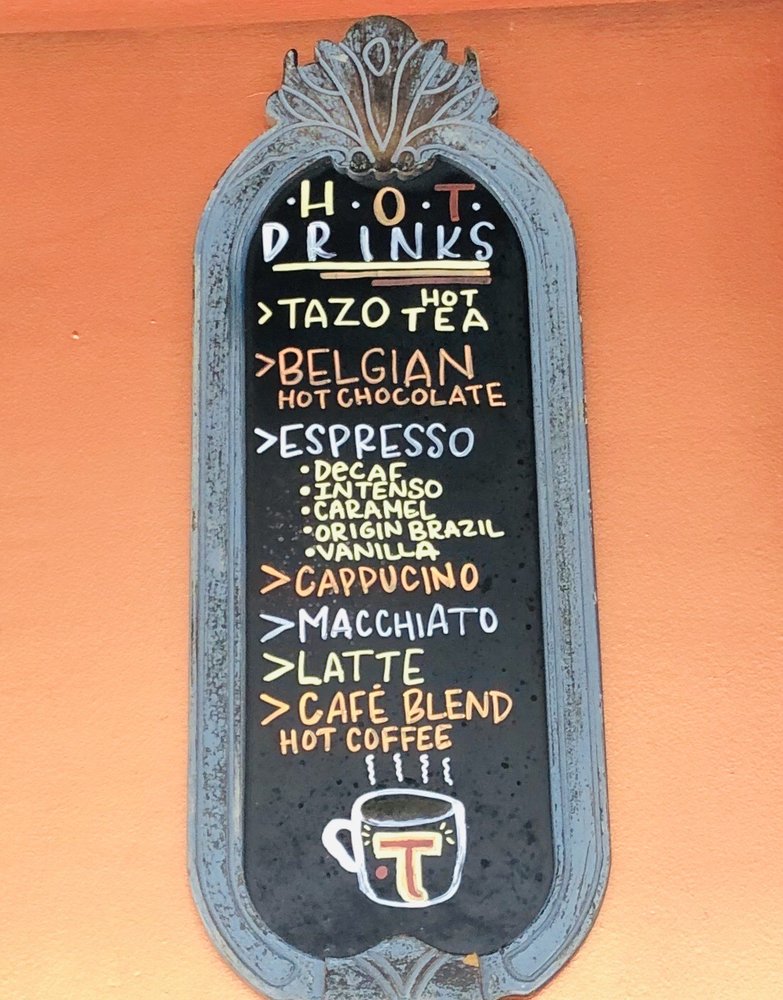 ·H·O·T·
DRINKS
>TAZO HOT TEA
>BELGIAN
HOT CHOCOLATE
>ESPRESSO
•DECAF
•INTENSO
•CARAMEL
•ORIGIN BRAZIL
•VANILLA
>CAPPUCINO
>MACCHIATO
>LATTE
>CAFÉ BLEND
HOT COFFEE
.T